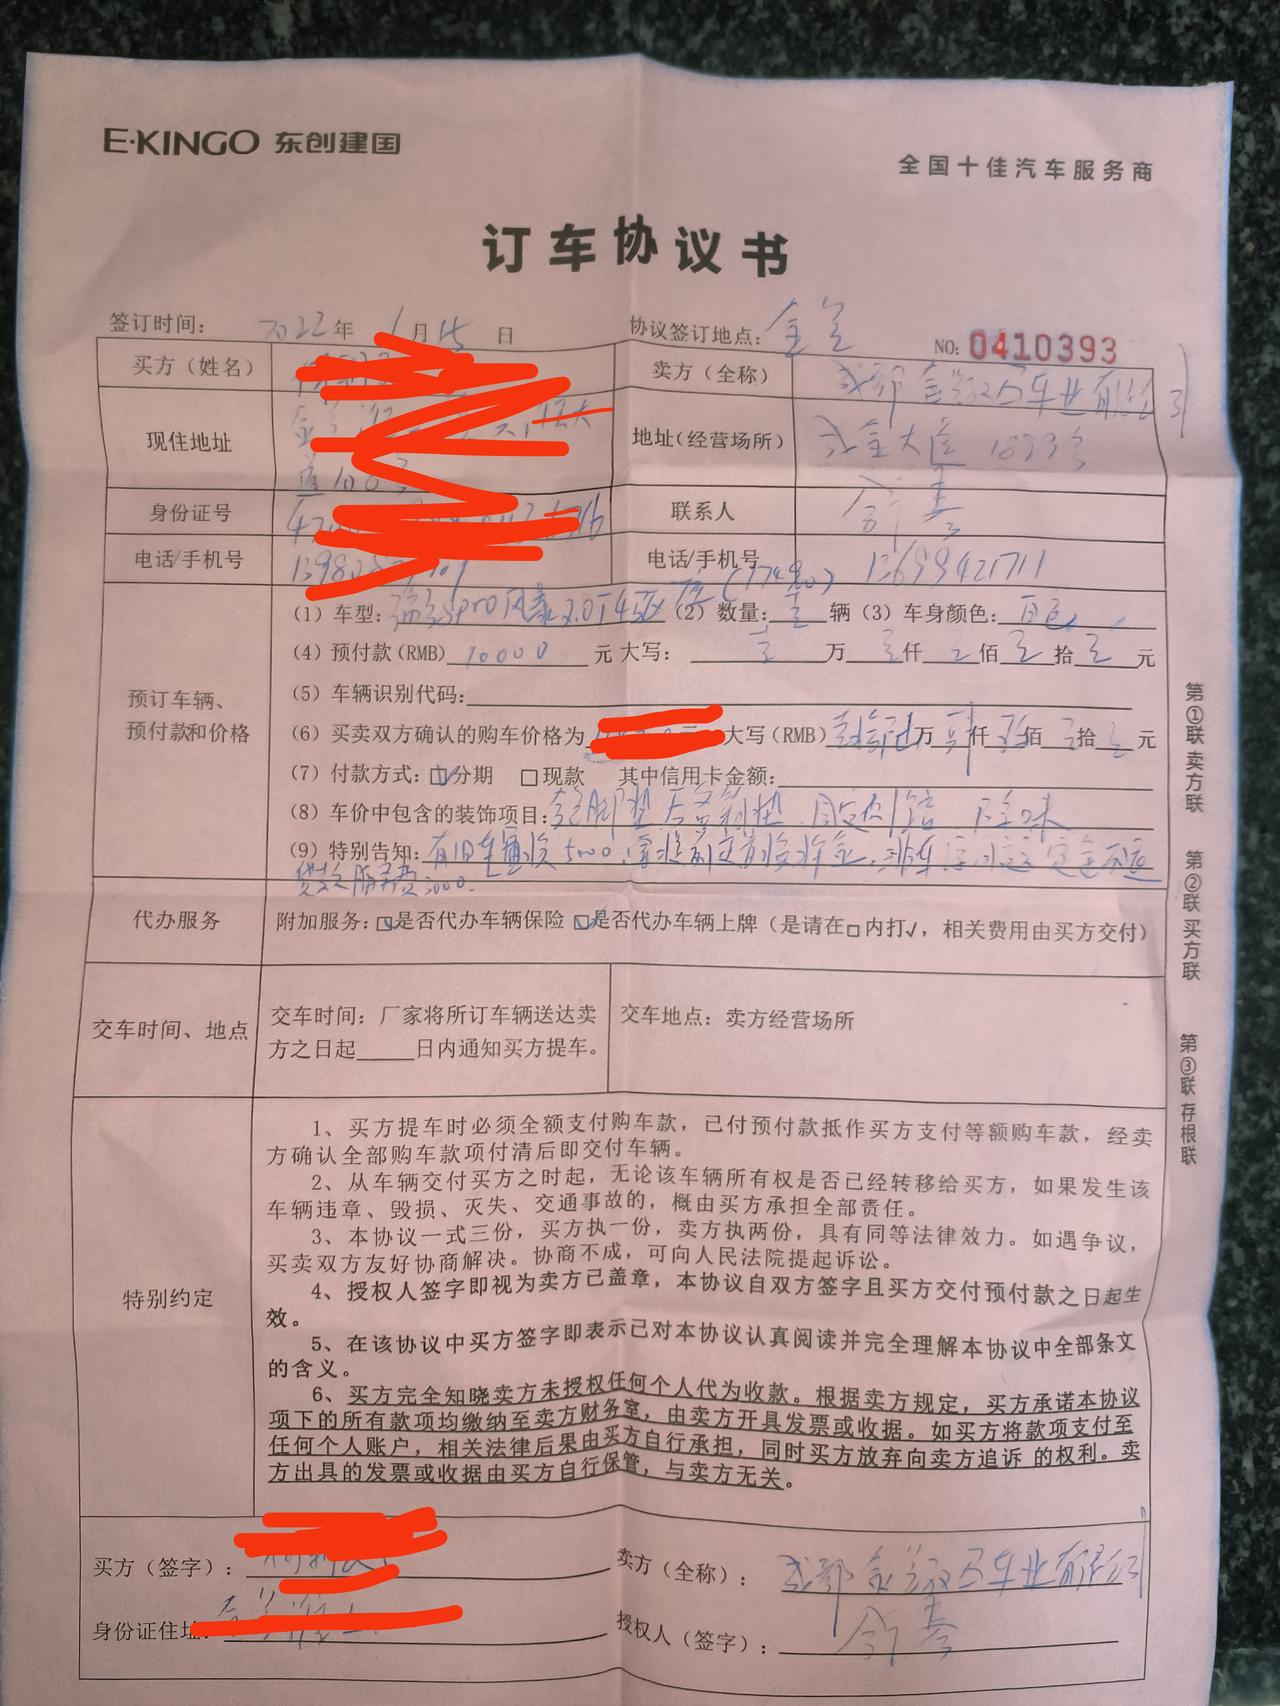 E·KINGO 东创建国
全国十佳汽车服务商
订车协议书
签订时间： 2022 年 1 月 15 日 协议签订地点： 金堂 NO: 0410393
买方（姓名） 卖方（全称） 成都 车业有限公司
现住地址 地址（经营场所） 成金大道
身份证号 联系人
电话/手机号 电话/手机号 13699421711
预订车辆、预付款和价格
（1）车型： （2）数量：壹 辆（3）车身颜色：白色
（4）预付款(RMB) 10000 元 大写： 壹 万 零 仟 零 佰 零 拾 零 元
（5）车辆识别代码：
（6）买卖双方确认的购车价格为 元 大写（RMB） 万 仟 佰 零 拾 零 元
（7）付款方式：☑分期 □现款 其中信用卡金额：
（8）车价中包含的装饰项目：
（9）特别告知：
贷款服务费3000.
代办服务 附加服务：☑是否代办车辆保险 ☑是否代办车辆上牌（是请在□内打√，相关费用由买方交付）
交车时间、地点
交车时间：厂家将所订车辆送达卖
方之日起____日内通知买方提车。
交车地点：卖方经营场所
特别约定
1、买方提车时必须全额支付购车款，已付预付款抵作买方支付等额购车款，经卖
方确认全部购车款项付清后即交付车辆。
2、从车辆交付买方之时起，无论该车辆所有权是否已经转移给买方，如果发生该
车辆违章、毁损、灭失、交通事故的，概由买方承担全部责任。
3、本协议一式三份，买方执一份，卖方执两份，具有同等法律效力。如遇争议，
买卖双方友好协商解决。协商不成，可向人民法院提起诉讼。
4、授权人签字即视为卖方已盖章，本协议自双方签字且买方交付预付款之日起生
效。
5、在该协议中买方签字即表示已对本协议认真阅读并完全理解本协议中全部条文
的含义。
6、买方完全知晓卖方未授权任何个人代为收款。根据卖方规定，买方承诺本协议
项下的所有款项均缴纳至卖方财务室，由卖方开具发票或收据。如买方将款项支付至
任何个人账户，相关法律后果由买方自行承担，同时买方放弃向卖方追诉 的权利。卖
方出具的发票或收据由买方自行保管，与卖方无关。
买方（签字）： 卖方（全称）： 成都 车业有限公司
身份证住址： 授权人（签字）：
第①联 卖方联
第②联 买方联
第③联 存根联